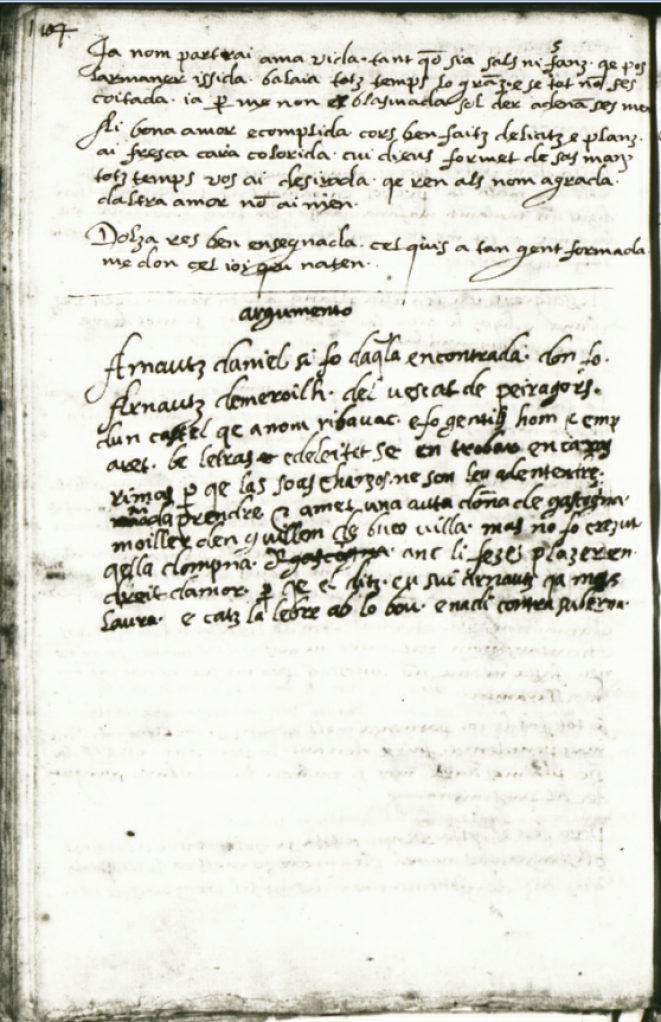 104
Ja nom partrai ama vida · tant qõ sia sals ni sanz · qe pos
larmaner issida · balaia totz temps lo grãz · e se tot nõ ses
coitada · ia p̱ me non er blasmada sol der adenã ses me
Ai bona amor ecomplida · cors ben faitz delicitz e planz ·
ai fresca cara colorida · cui dieus formet de sas manz
totz temps vos ai desirada · qe ren als nom agrada ·
daltra amor nõ ai nien ·
Dolza res ben ensegnada · cel quis a tan gent formada ·
me don cel ioi qeu naten ·
argumento
Arnautz daniel si fo daq̃la encontrada · don fo ·
Arnautz demeroilh · del vescat de peiragors ·
dun castel qe anom ribairac · e fo gentils hom & emp
aret · be letras edeleitet se en trobar en caras
rimas p̱ qe las soas chanzos · ne son leu adentendre ·
ni ada prendre & amet una auta dõna de gascogna ·
moiller den guillem de buou villa · mas nõ fo crezut
qella dompna · anc li fezes plazer en
dreit damor · p̱ qe el ditz · eu sui arnautz qa mas
laura · e catz la lebre ab lo bou · e nadi contra suberna ·